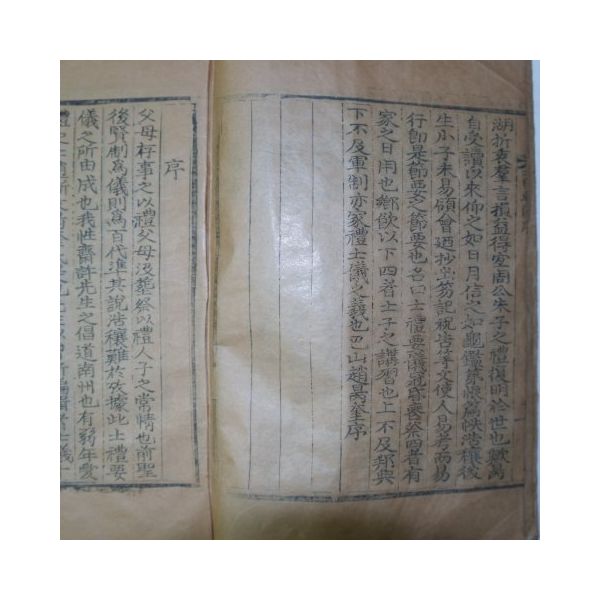 湖折衷羣言損益得宜周公朱子之禮復明於世也歟萬
自受讀以來仰之如日月信之如龜鑑第恨篇帙浩穰後
生小子未易領會廼抄
行卽是節要之節要也名曰士禮要儀冠昏喪祭四者有
家之日用也鄕飮以下四者士子之講習也上不及邦典
下不及軍制亦家禮士儀之義也巴山趙昺奎序
序
父母存事之以禮父母沒葬祭以禮人子之常情也前聖
後賢制爲儀則爲百代準其說浩穰難於依據此士禮要
儀之所由成也我性齋許先生之倡道南州也有弱年愛